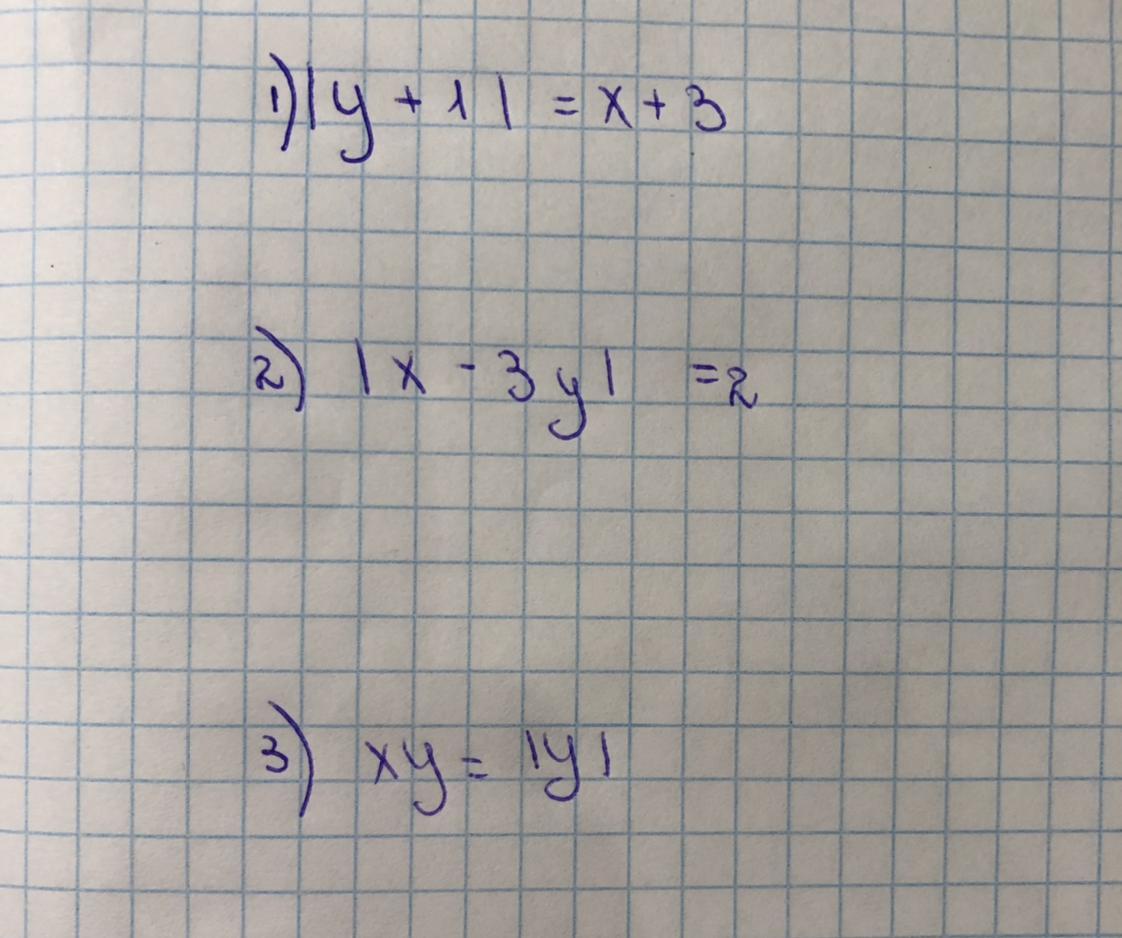 1) |y + 1| = x + 3
2) |x - 3y| = 2
3) xy = |y|